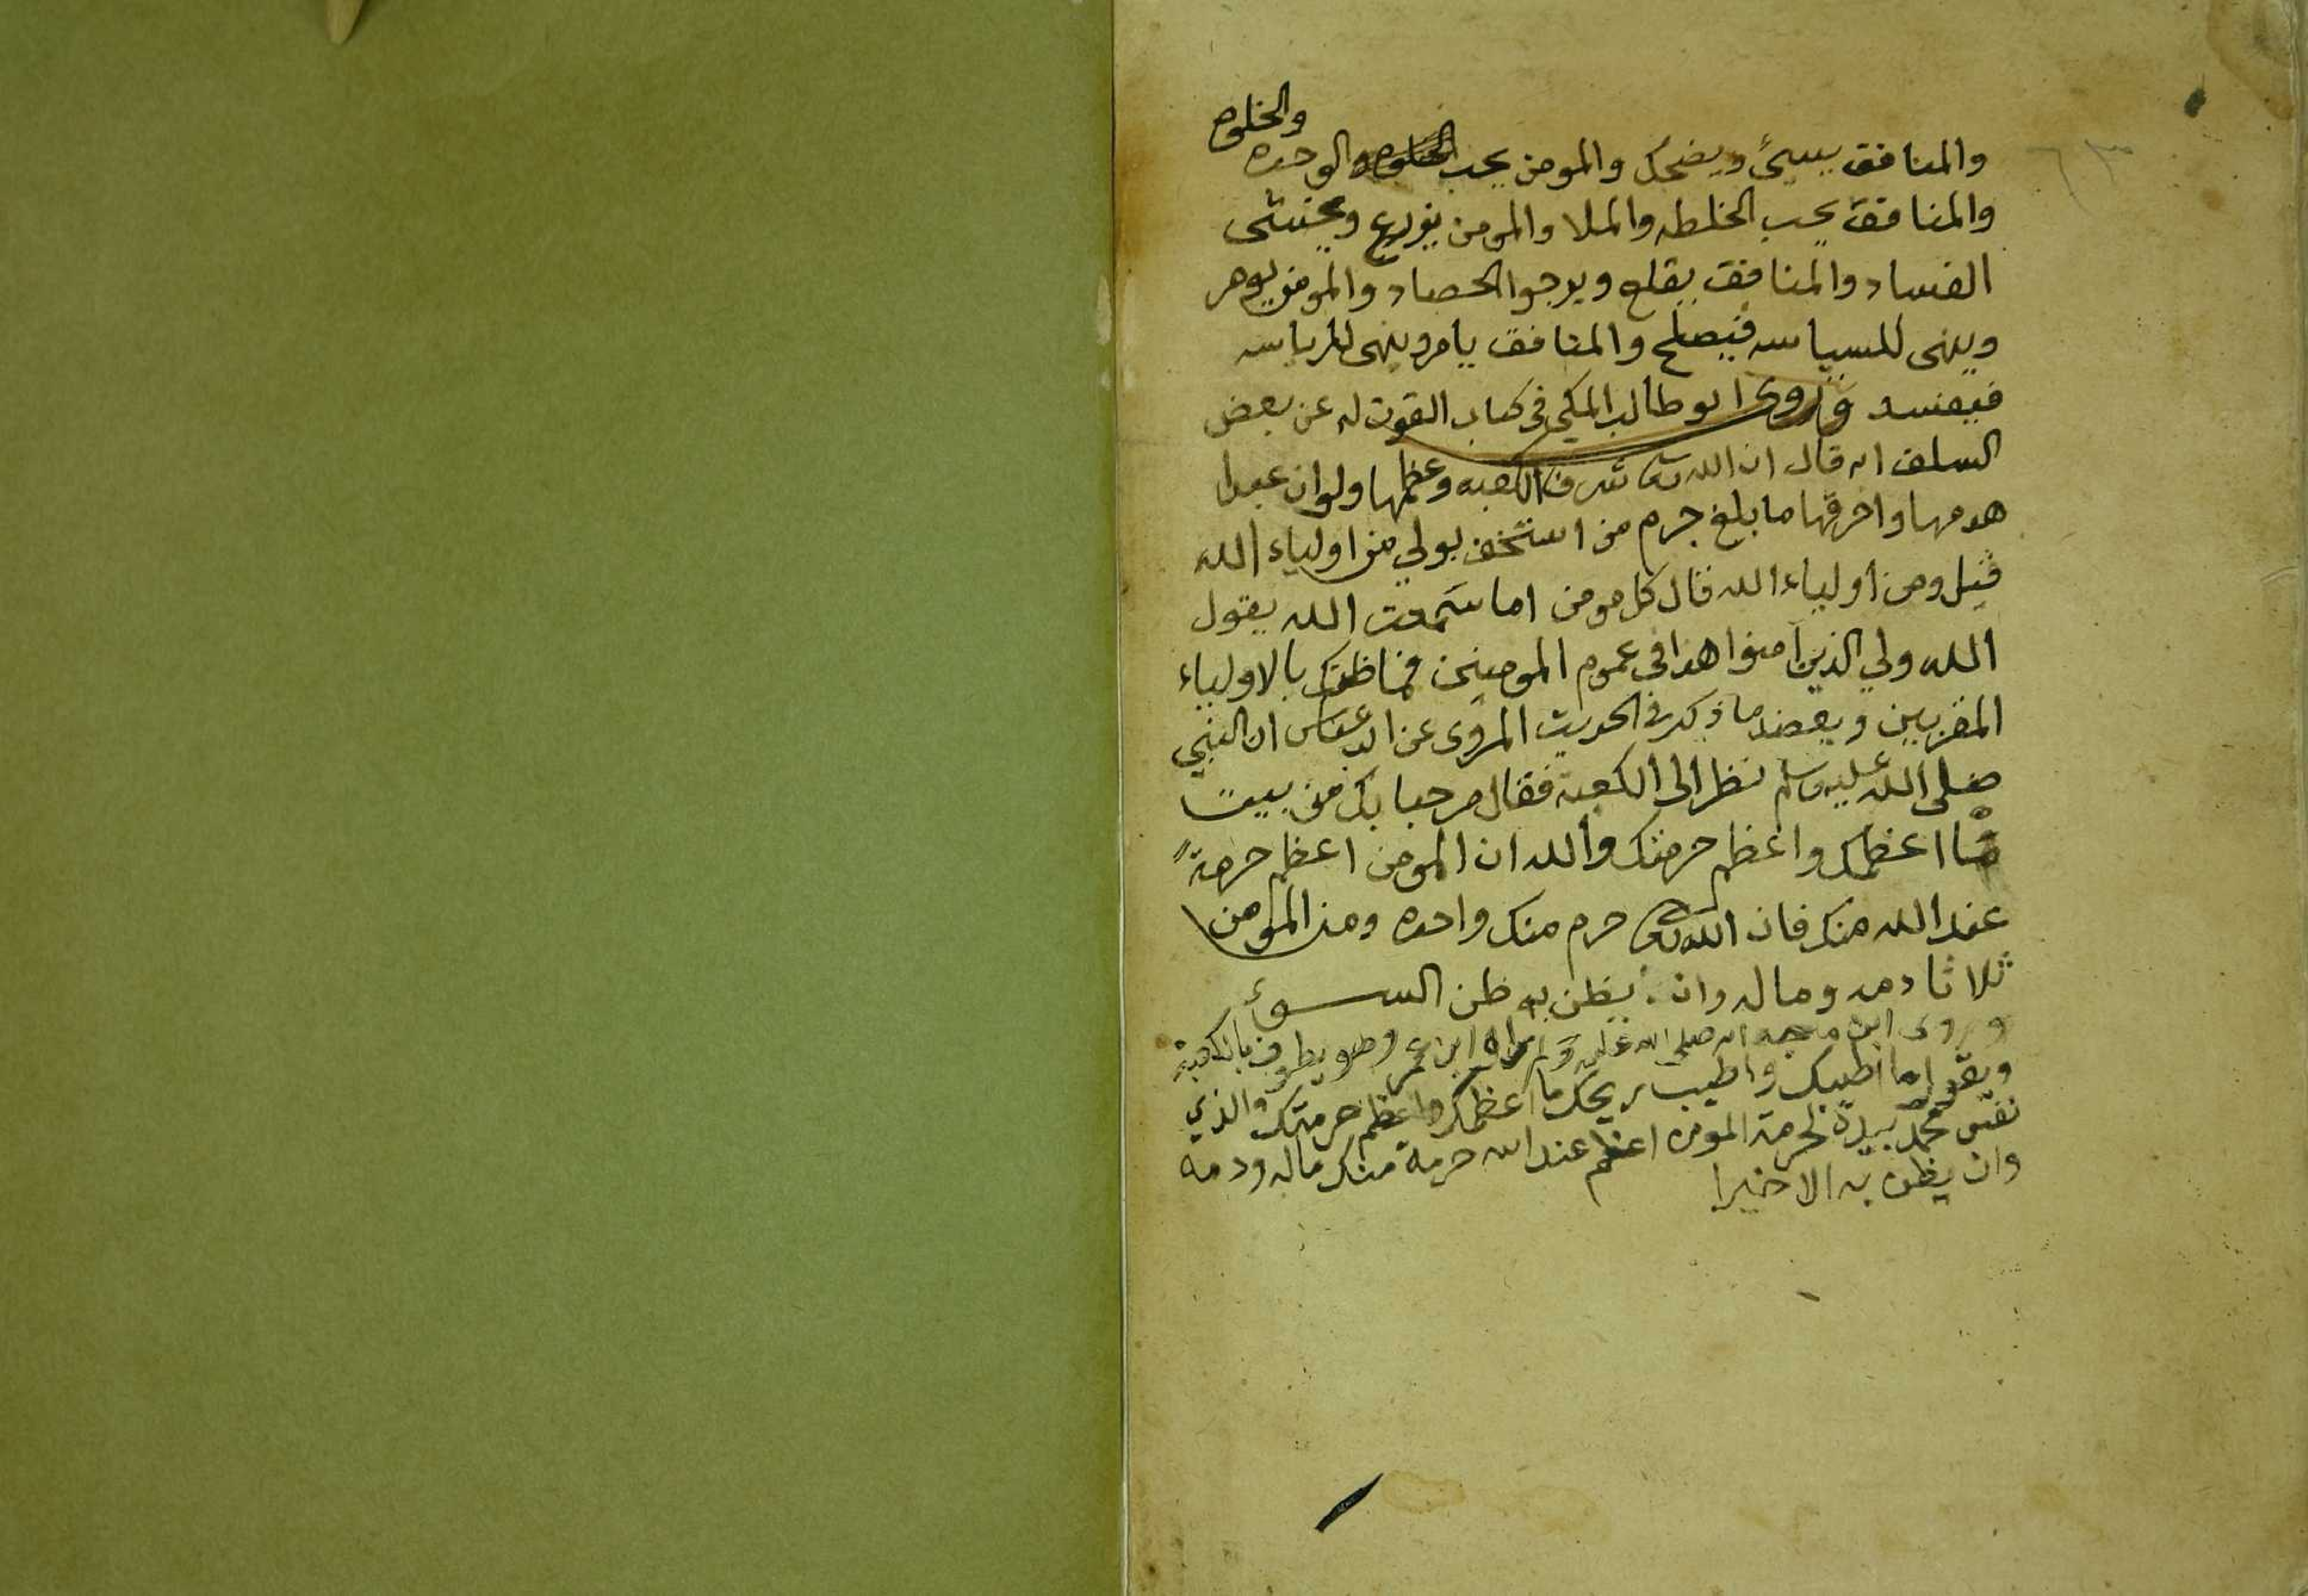 والمنافق يسيئ ويضحك والمومن يحب الوحده والخلوه
والمنافق يحب الخلطه والملا والمومن يزرع ويخشى
الفساد والمنافق يقلع ويرجوا الحصاد والمومن يومر
وينهى للسياسه فيصلح والمنافق يامر وينهى للرياسه
فيفسد وروى ابو طالب المكي في كتاب القوت له عن بعض
السلف انه قال ان الله تعا شرف الكعبه وعظمها ولو ان عبدا
هدمها واحرقها ما بلغ جرم من استخف بولي من اولياء الله
قيل ومن اولياء الله قال كل مومن اما سمعت الله يقول
الله ولي الذين آمنوا هذا في عموم المومنين فما ظنك بالاولياء
المقربين ويعضد ما ذكر في الحديث المروى عن ابن عباس ان النبي
صلى الله عليه وسلم نظر الى الكعبة فقال مرحبا بك من بيت
ما اعظمك واعظم حرمتك والله ان المومن اعظم حرمة
عند الله منك فان الله تعا حرم منك واحده ومن المومن
ثلاثا دمه وماله وان يظن به ظن السوء
وروى ابن ماجه انه صلى الله عليه وسلم راه ابن عمر وهو يطوف بالكعبة
ويقول ما اطيبك واطيب ريحك ما اعظمك واعظم حرمتك والذي
نفس محمد بيده لحرمة المومن اعظم عند الله حرمة منك ماله ودمه
وان يظن به الا خيرا